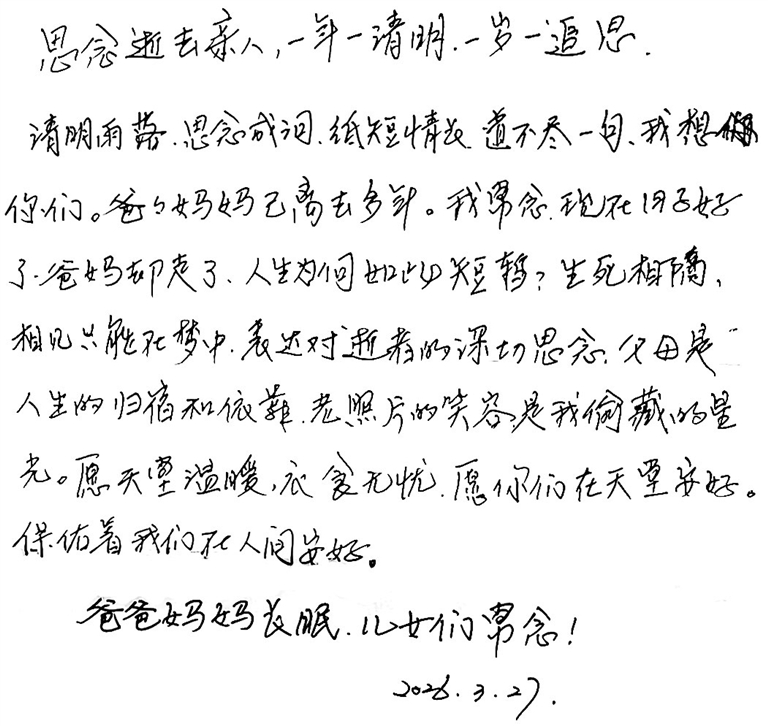 思念逝去亲人,一年一清明.一岁一追思.
清明雨落.思念成词.纸短情长.道不尽一句、我想
你们。爸々妈妈已离去多年。我常念.现在日子好
了.爸妈却走了、人生为何如此短暂?生死相隔,
相见只能在梦中.表达对逝者的深切思念.父母是
人生的归宿和依靠.老照片的笑容是我偷藏的星
光。愿天堂温暖,衣食无忧.愿你们在天堂安好。
保佑着我们在人间安好。
爸爸妈妈长眠.儿女们常念!
2026.3.27.